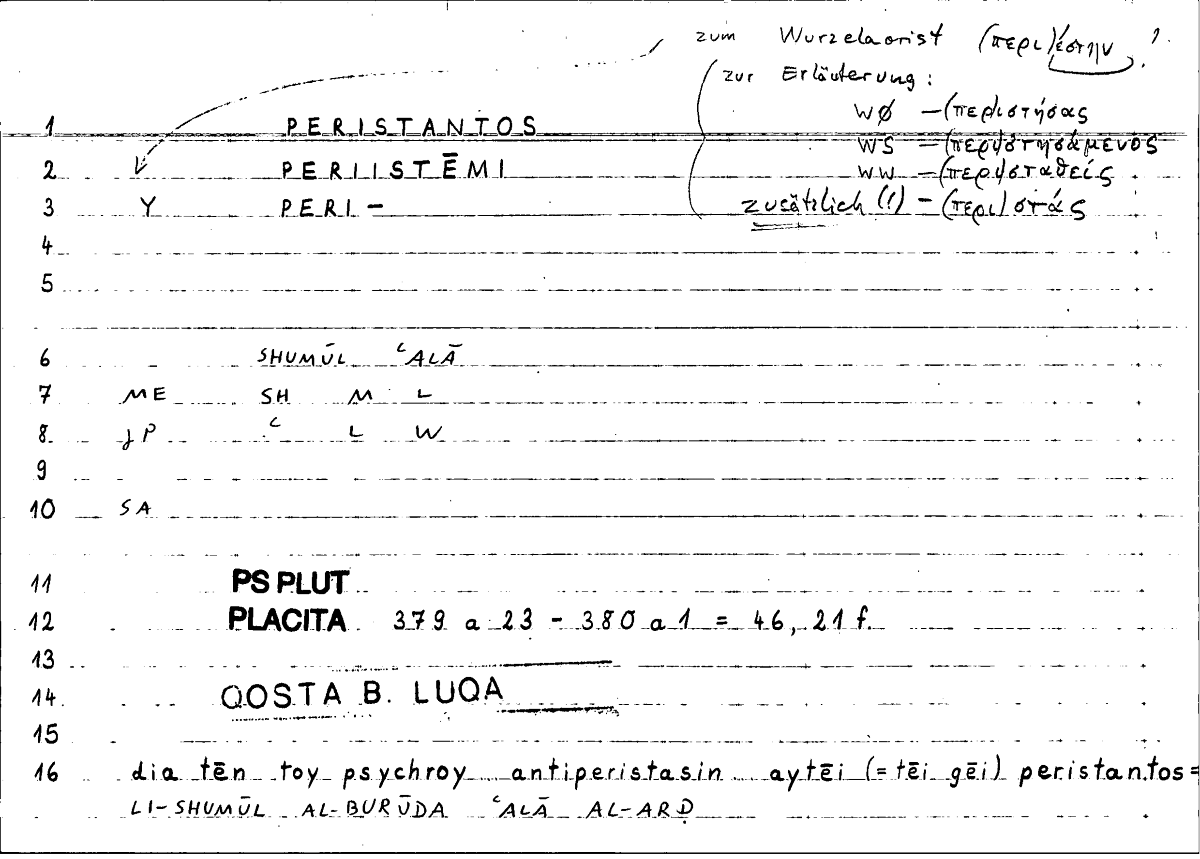 zum Wurzelaorist (περι)έστην ?
zur Erläuterung:
WØ – (περι)στήσας
WS – (περι)στησάμενος
WW – (περι)σταθείς
zusätzlich (!) – (περι)στάς
1 PERISTANTOS
2 PERIISTĒMI
3 Y PERI –
4
5
6 SHUMŪL ʿALĀ
7 ME SH M L
8 JP ʿ L W
9
10 SA
11 PS PLUT
12 PLACITA 379 a 23 - 380 a 1 = 46, 21 f.
13
14 QOSTA B. LUQA
15
16 dia tēn toy psychroy antiperistasin aytēi (= tēi gēi) peristantos =
LI-SHUMŪL AL-BURŪDA ʿALĀ AL-ARḌ